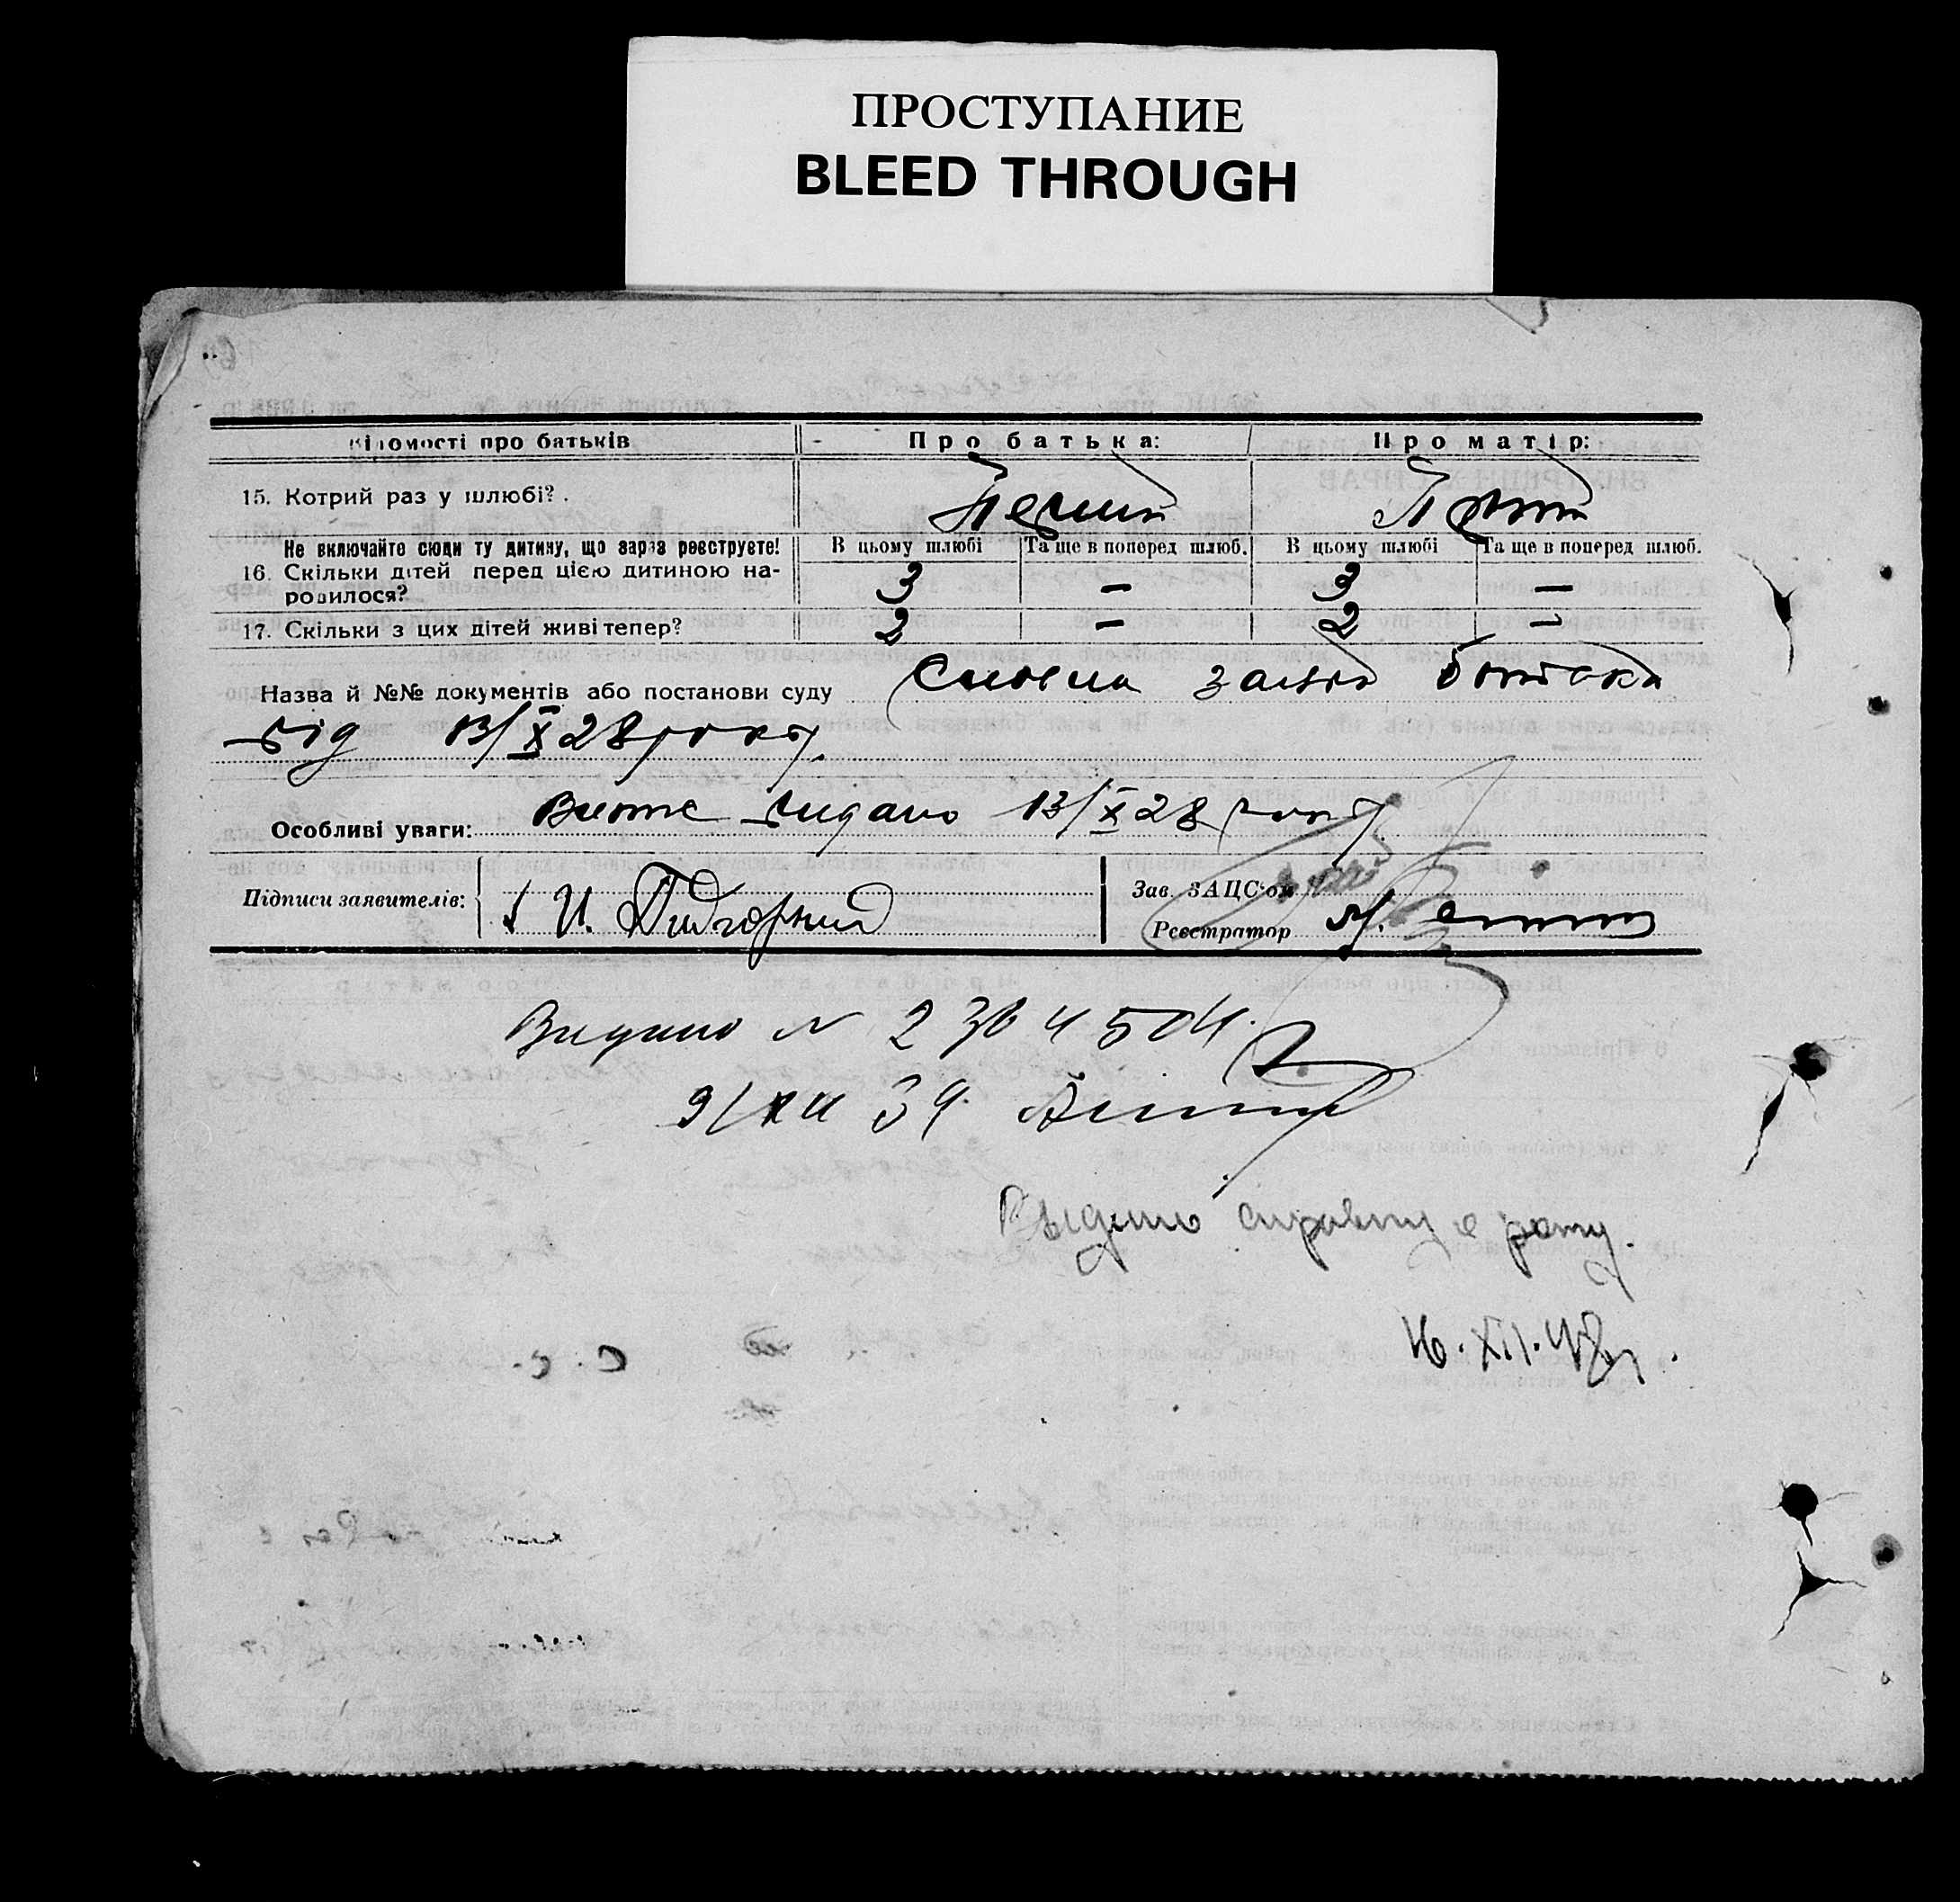 ПРОСТУПАНИЕ
BLEED THROUGH
Відомості про батьків Про батька: Про матір:
15. Котрий раз у шлюбі? Перший
Не включайте сюди ту дитину, що зараз реєструєте! В цьому шлюбі Та ще в поперед шлюб. В цьому шлюбі Та ще в поперед шлюб.
16. Скільки дітей перед цією дитиною на-
родилося? 3 — 3 —
17. Скільки з цих дітей живі тепер? 2 — 2 —
Назва й №№ документів або постанови суду Словна заява батька
від 13/X 28 року.
Особливі уваги: видано 13/X 28 року
Підписи заявителів: И. Підгорний Зав. ЗАЦС'ом
Реєстратор
Видано N 2364504
9/XII 39
Выдано справку о рожд.
16.XII.48г.